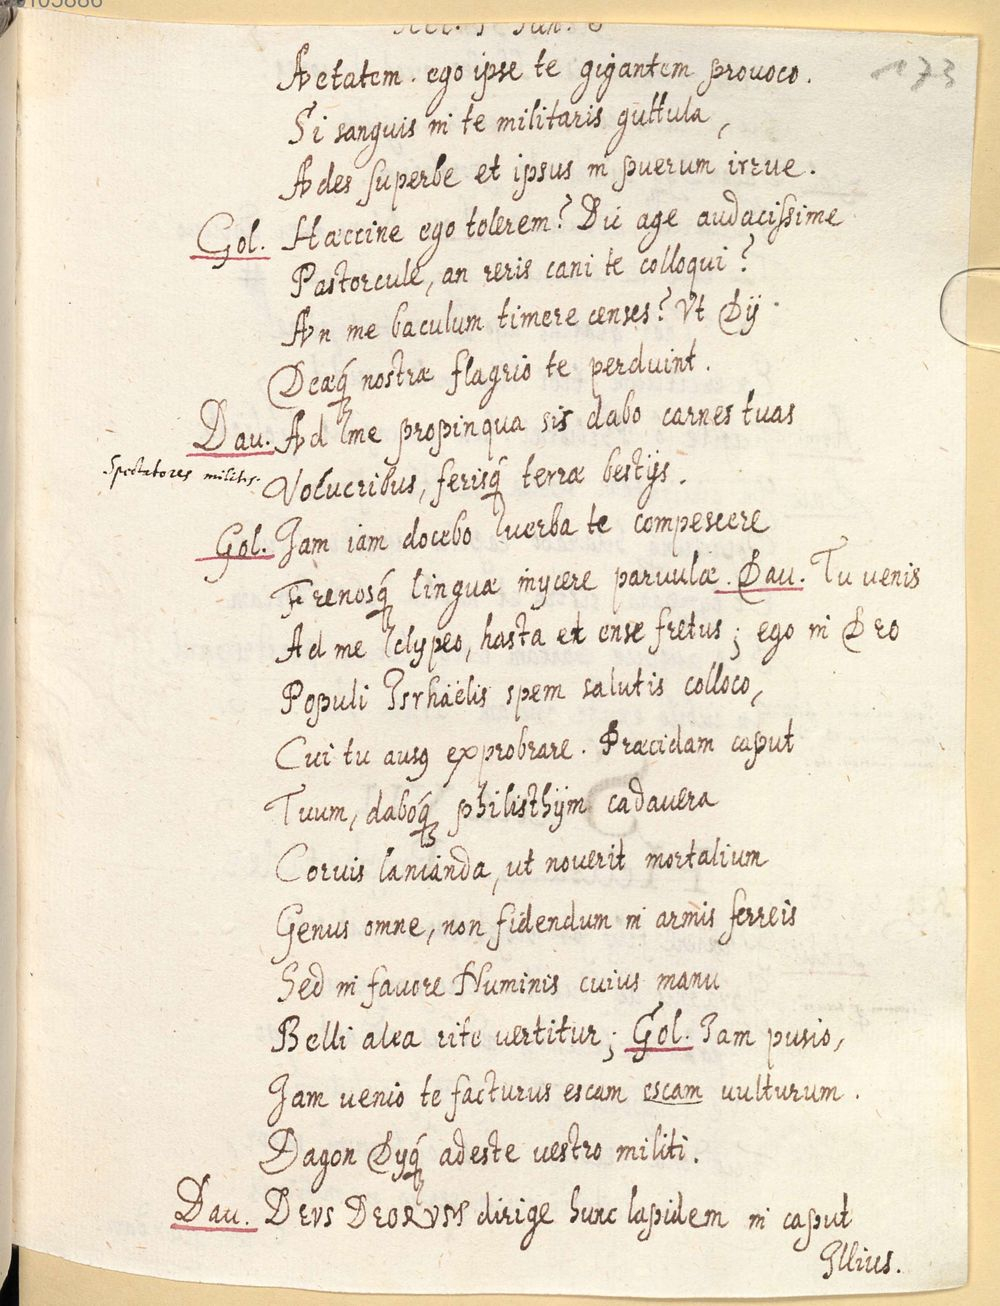 173
Aetatem. ego ipse te gigantem prouoco.
Si sanguis in te militaris guttula,
Ades superbe et ipsus in puerum irrue.
Gol. Haeccine ego tolerem? Dic age audacissime
Pastorcule, an reris cani te colloqui?
An me baculum timere censes? Vt Dij
Deaeq́ nostrae flagrio te perduint.
Dau. Ad me propinqua sis dabo carnes tuas
Spectatores milites. Volucribus, ferisq́ terrae bestijs.
Gol. Jam iam docebo uerba te compescere
Frenosq́ linguae inijcere paruulae. Dau. Tu venis
Ad me clypeo, hasta et ense fretus; ego in Deo
Populi Isrhaëlis spem salutis colloco,
Cui tu ausꝰ exprobrare. Praecidam caput
Tuum, daboq́ philisthijm cadauera
Coruis lanianda, ut nouerit mortalium
Genus omne, non fidendum in armis ferreis
Sed in fauore Numinis cuius manu
Belli alea rite vertitur; Gol. Jam pusio,
Jam uenio te facturus escam escam uulturum.
Dagon Dijq́ adeste uestro militi.
Dau. DEVS DEORVM dirige hunc lapidem in caput
Illius.